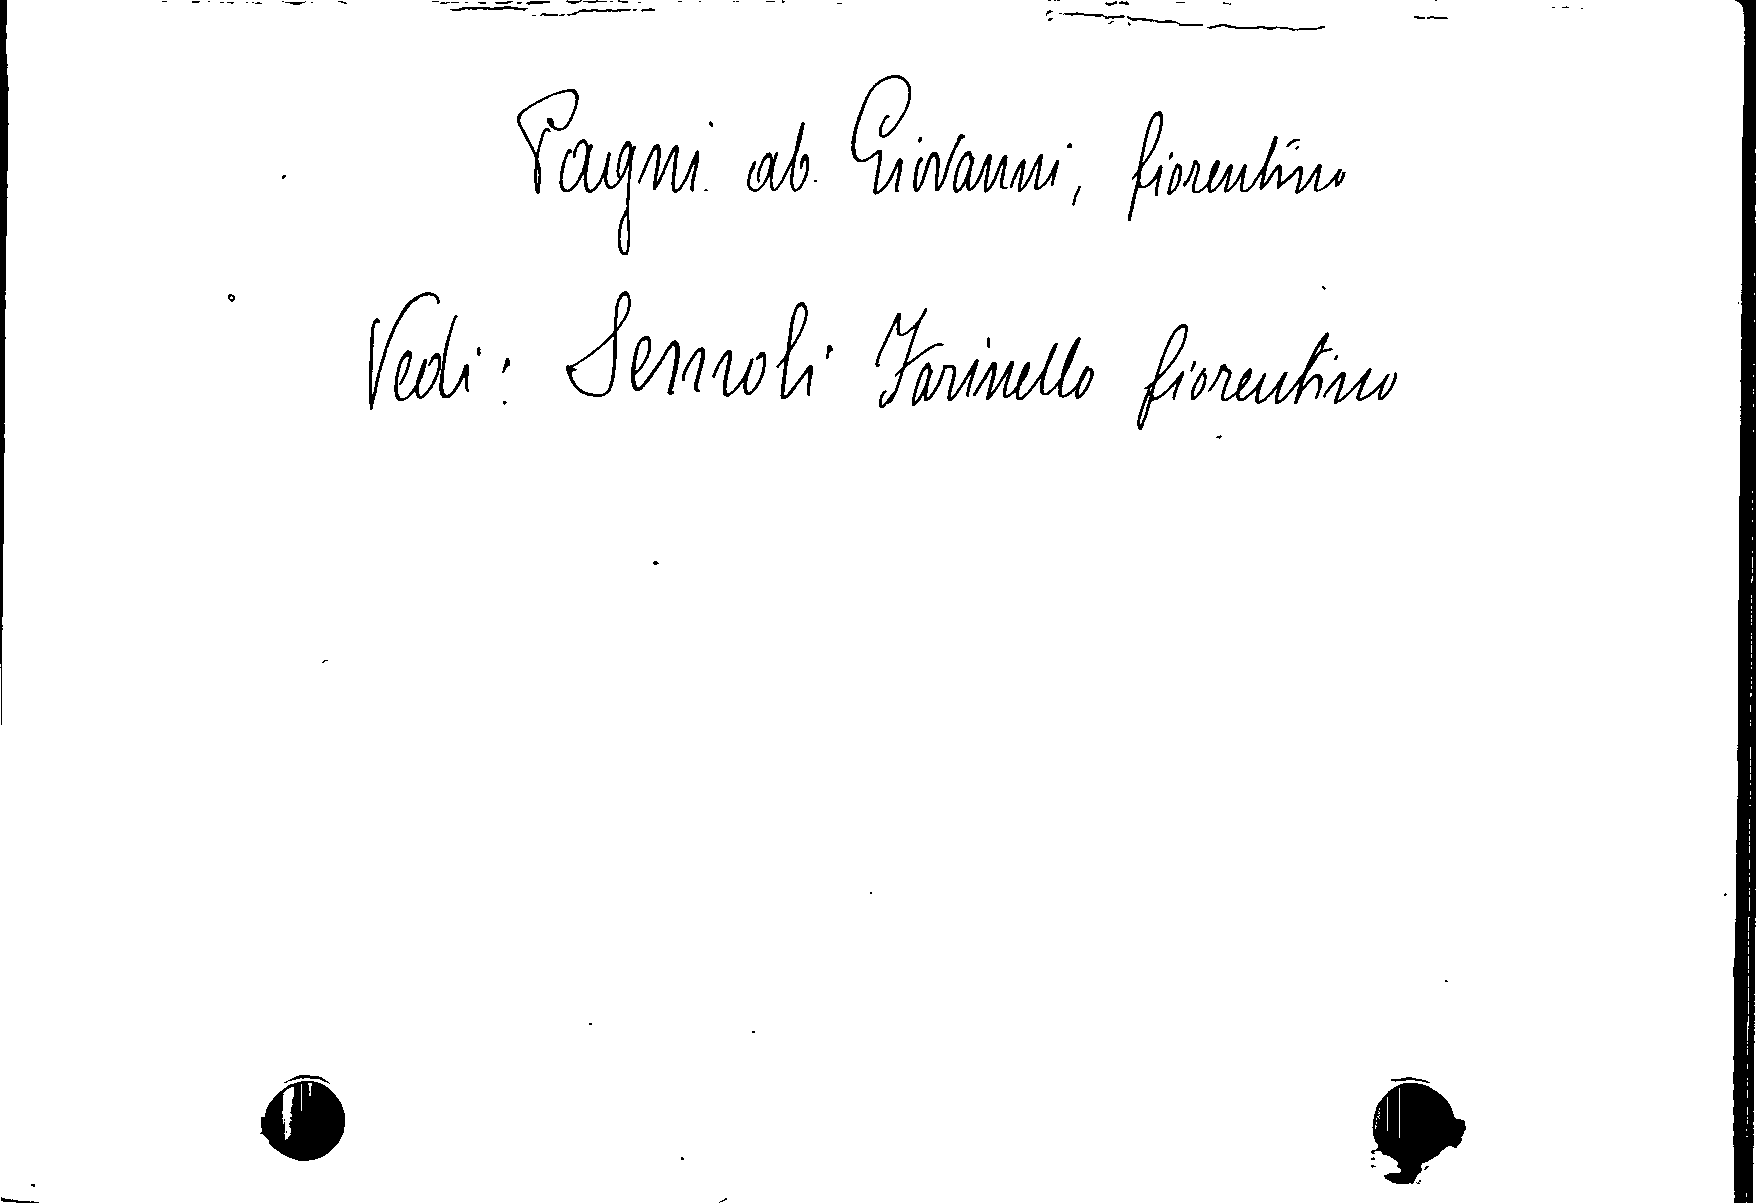 Pagni ab. Giovanni, fiorentino
Vedi: Sennoli Farinello fiorentino